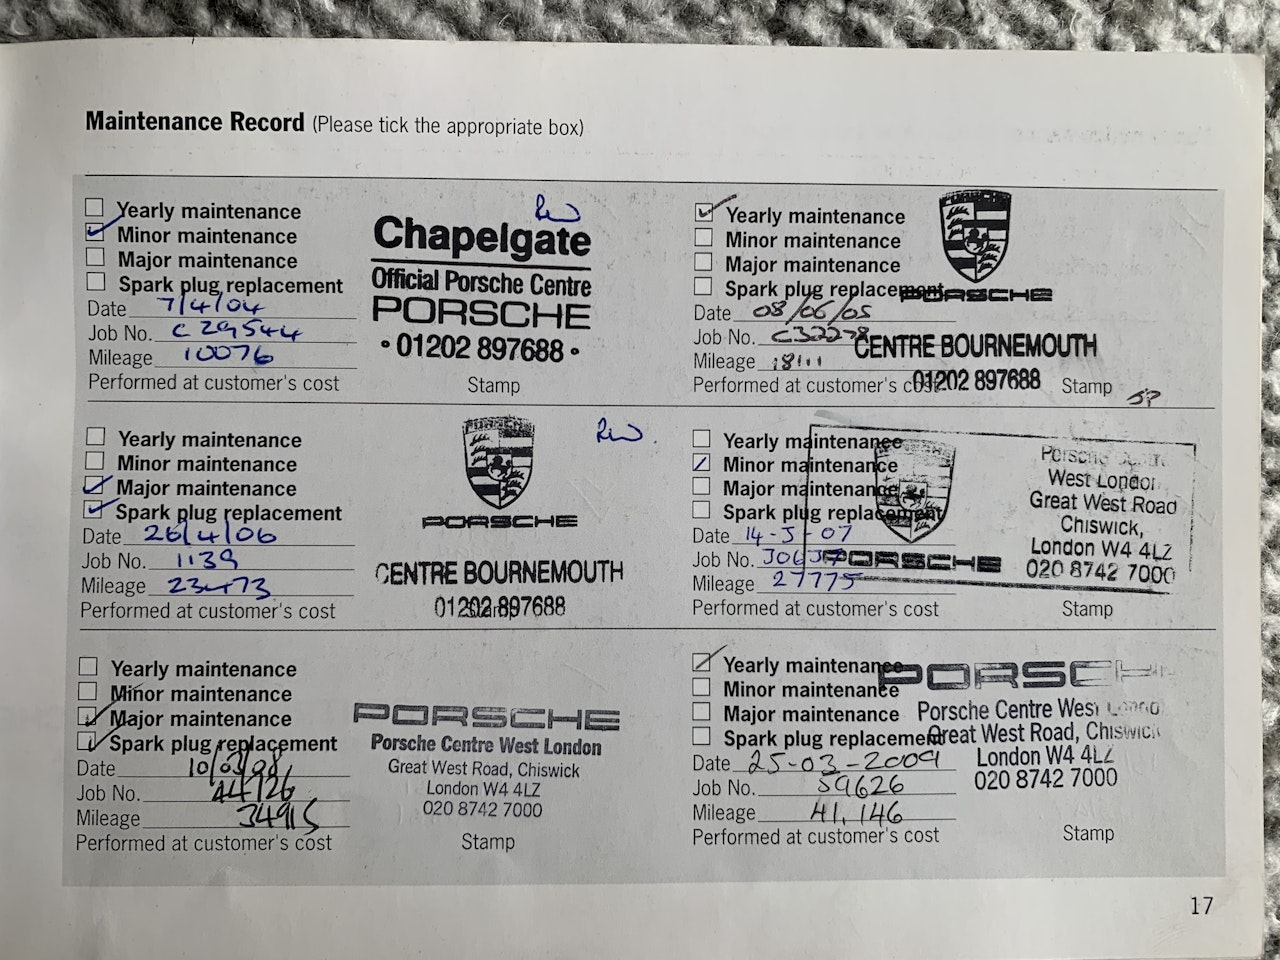 Maintenance Record (Please tick the appropriate box)
Yearly maintenance
Minor maintenance
Major maintenance
Spark plug replacement
Date 7/4/04
Job No. C29544
Mileage 10076
Performed at customer's cost
Chapelgate
Official Porsche Centre
PORSCHE
• 01202 897688 •
Stamp
Yearly maintenance
Minor maintenance
Major maintenance
Spark plug replacement
Date 08/06/05
Job No. C32278
Mileage 18111
Performed at customer's cost
PORSCHE
CENTRE BOURNEMOUTH
01202 897688
Stamp
Yearly maintenance
Minor maintenance
Major maintenance
Spark plug replacement
Date 26/4/06
Job No. 1139
Mileage 23473
Performed at customer's cost
PORSCHE
CENTRE BOURNEMOUTH
01202 897688
Stamp
Yearly maintenance
Minor maintenance
Major maintenance
Spark plug replacement
Date 14-5-07
Job No.
Mileage 27775
Performed at customer's cost
PORSCHE
Porsche Centre
West London
Great West Road
Chiswick,
London W4 4LZ
020 8742 7000
Stamp
Yearly maintenance
Minor maintenance
Major maintenance
Spark plug replacement
Date 10/03/08
Job No. 44726
Mileage 34915
Performed at customer's cost
PORSCHE
Porsche Centre West London
Great West Road, Chiswick
London W4 4LZ
020 8742 7000
Stamp
Yearly maintenance
Minor maintenance
Major maintenance
Spark plug replacement
Date 25-03-2009
Job No. 59626
Mileage 41,146
Performed at customer's cost
PORSCHE
Porsche Centre West London
Great West Road, Chiswick
London W4 4LZ
020 8742 7000
Stamp
17